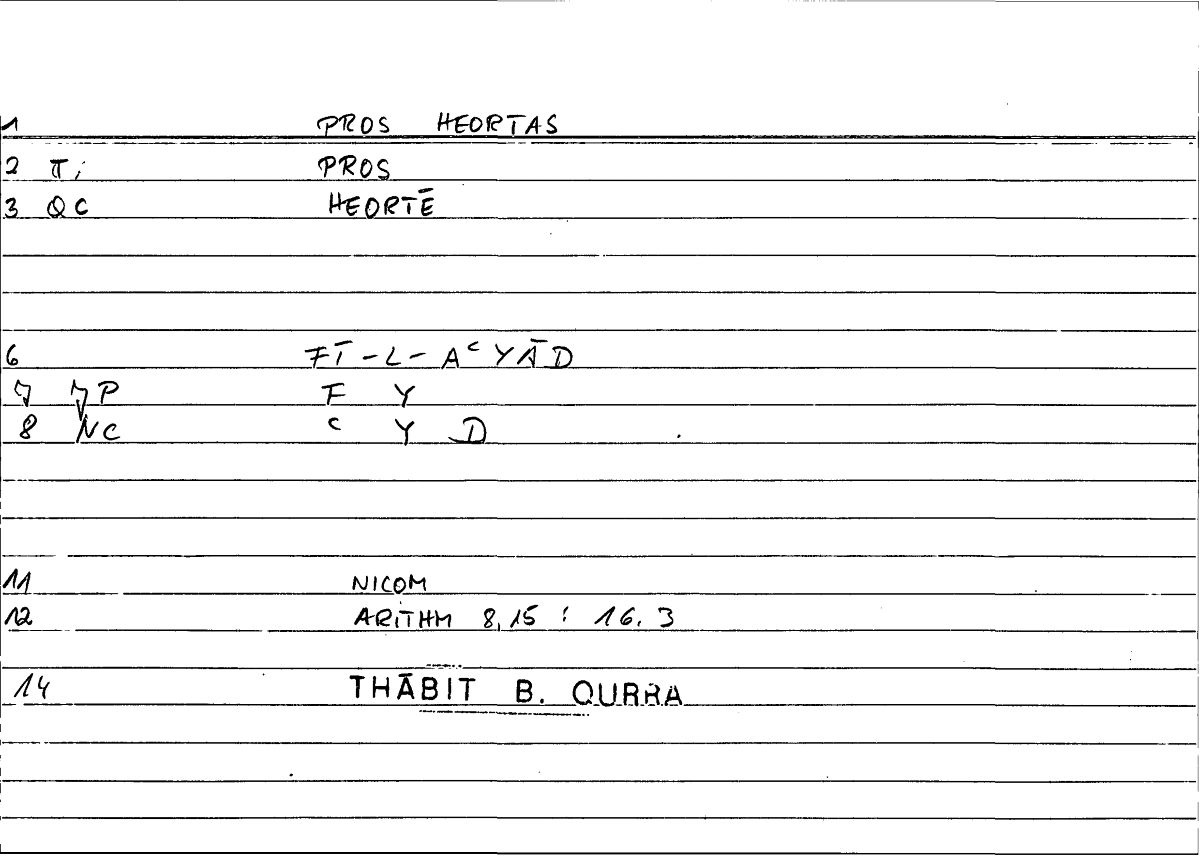 1 PROS HEORTAS
2 π; PROS
3 QC HEORTĒ
6 FĪ-L-AᶜYĀD
7 7P F Y
8 NC ᶜ Y D
11 NICOM
12 ARITHM 8,15 : 16.3
14 THĀBIT B. QURRA